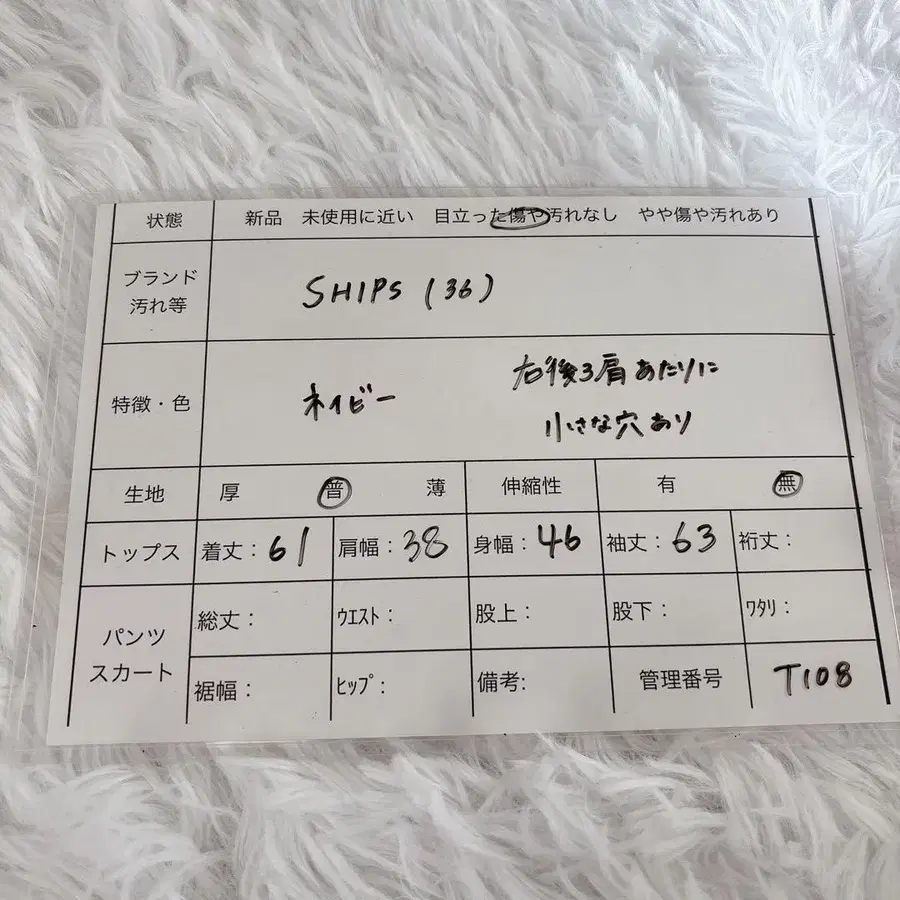 状態 新品 未使用に近い 目立った傷や汚れなし やや傷や汚れあり
ブランド
汚れ等
SHIPS (36)
特徴・色
ネイビー
右後ろ肩あたりに
小さな穴あり
生地 厚 普 薄 伸縮性 有 無
トップス 着丈：61 肩幅：38 身幅：46 袖丈：63 裄丈：
パンツ
スカート
総丈： ｳｴｽﾄ： 股上： 股下： ﾜﾀﾘ：
裾幅： ﾋｯﾌﾟ： 備考: 管理番号 T108